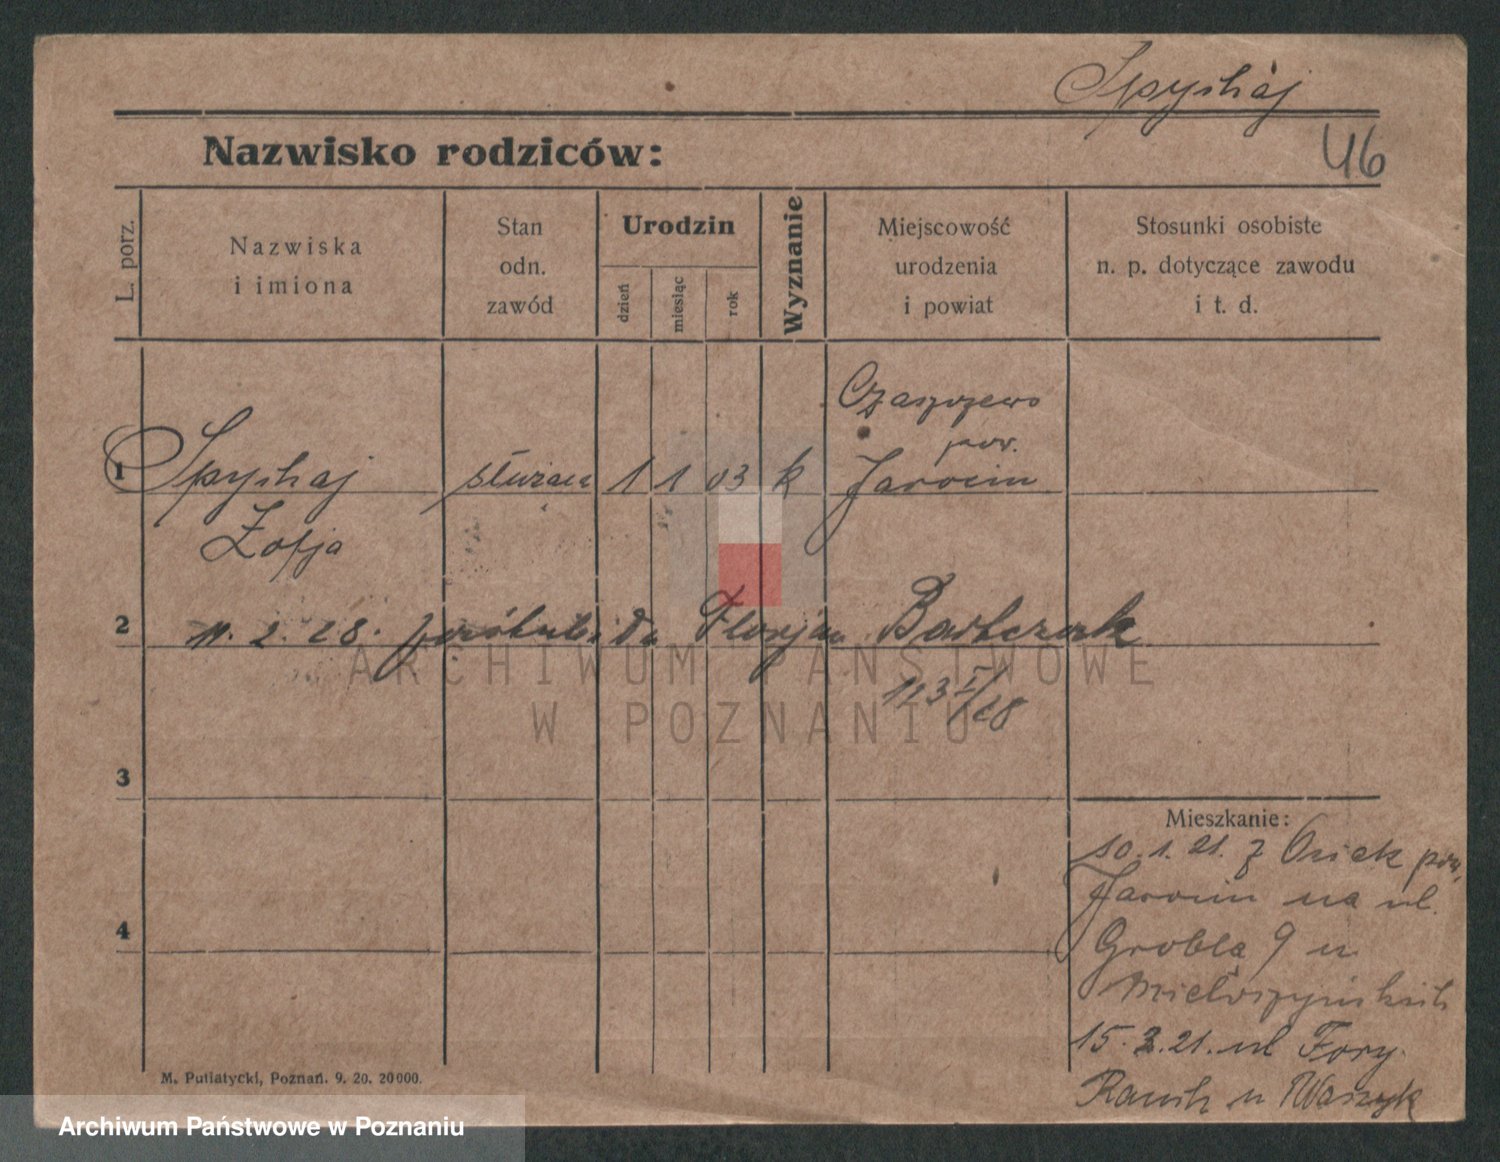 Spychaj
46
Nazwisko rodziców:
L. porz.
Nazwiska
i imiona
Stan
odn.
zawód
Urodzin
dzień
miesiąc
rok
Wyznanie
Miejscowość
urodzenia
i powiat
Stosunki osobiste
n. p. dotyczące zawodu
i t. d.
Czaszczewo
pow.
1 Spychaj służąca 1 1 03 k Jarocin
Zofja
2 11. 2. 28. Florjan Bartczak
113 I/28
ARCHIWUM PAŃSTWOWE
W POZNANIU
3
Mieszkanie:
10. 1. 21. z Osiek pow.
Jarocin na ul.
4 Grobla 9 u
15. 2. 21. ul Fory
u Waszyk
M. Putiatycki, Poznań. 9. 20. 20000.
Archiwum Państwowe w Poznaniu